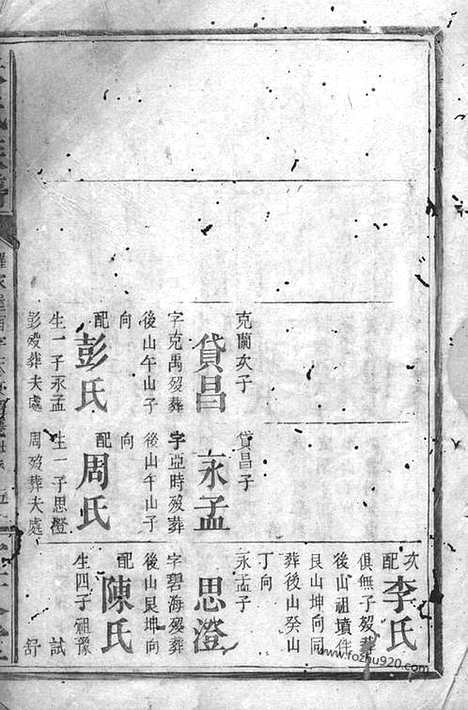 克蘭次子
貸昌
字克禹歿葬
後山午山子
向
配
彭氏
生一子永孟
彭歿葬夫處
貸昌子
永孟
字亞時歿葬
後山午山子
向
配
周氏
生一子思澄
周歿葬夫處
次
配
李氏
俱無子歿葬
後山祖墳件
艮山坤向同
葬後山癸山
丁向
永孟子
思澄
字碧海歿葬
後山艮坤向
配
陳氏
生四子祖豫
試
舒
www.fozhu920.com